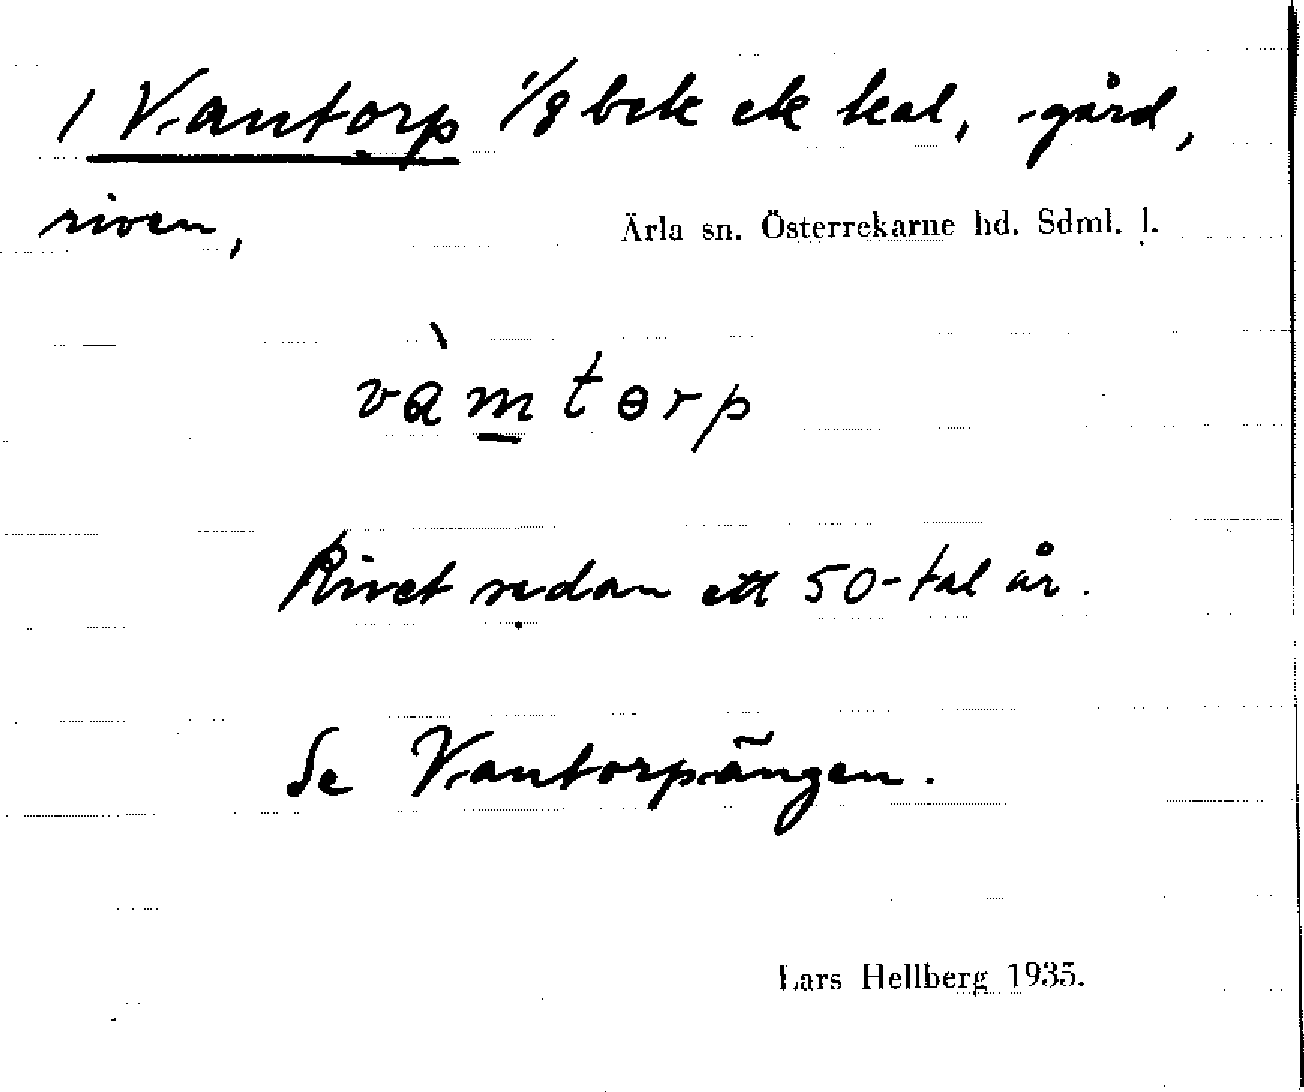 / Vantorp 1/8 bek ek kal, gård,
riven,
Ärla sn. Österrekarne hd. Sdml. l.
vàmtɵrp
Rivet sedan ett 50-tal år.
Se Vantorpängen.
Lars Hellberg 1935.